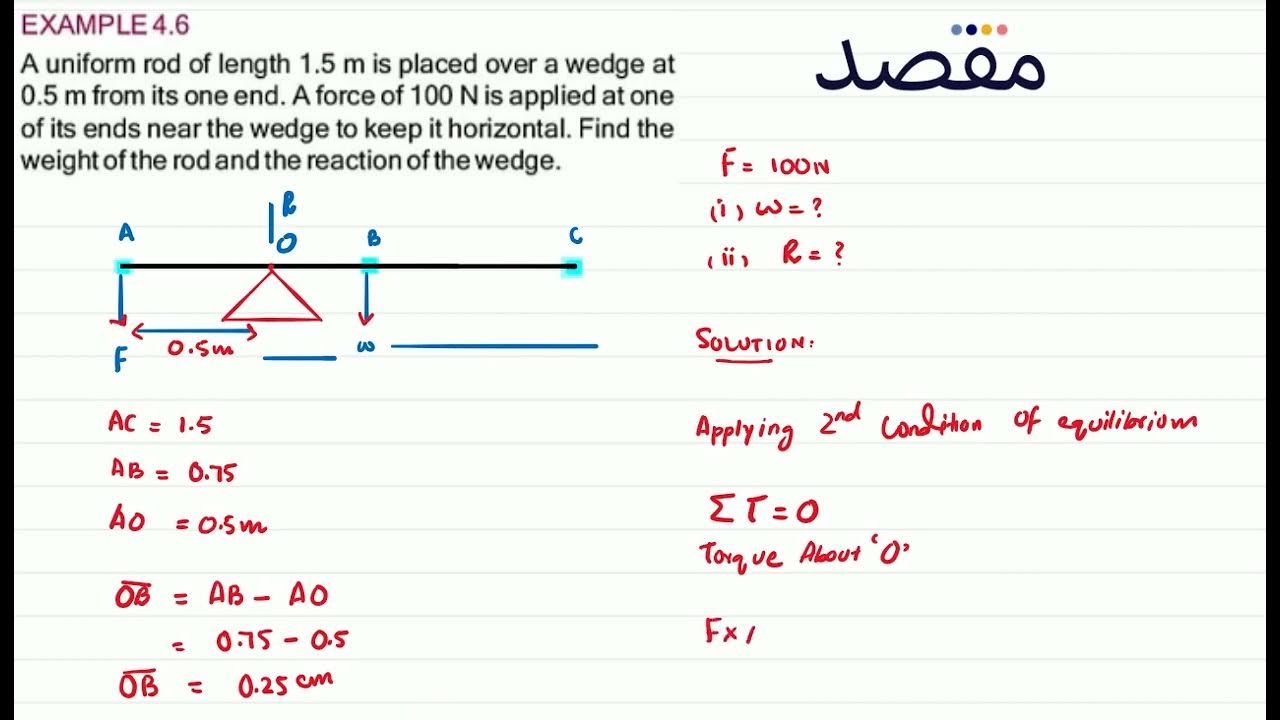 EXAMPLE 4.6
A uniform rod of length 1.5 m is placed over a wedge at
0.5 m from its one end. A force of 100 N is applied at one
of its ends near the wedge to keep it horizontal. Find the
weight of the rod and the reaction of the wedge.
مقصد
F = 100N
(i) w = ?
(ii) R = ?
R
A O B C
0.5m
F w
AC = 1.5
AB = 0.75
AO = 0.5m
OB = AB - AO
= 0.75 - 0.5
OB = 0.25 cm
SOLUTION:
Applying 2nd Condition Of equilibrium
Στ = 0
Torque About 'O'
F×